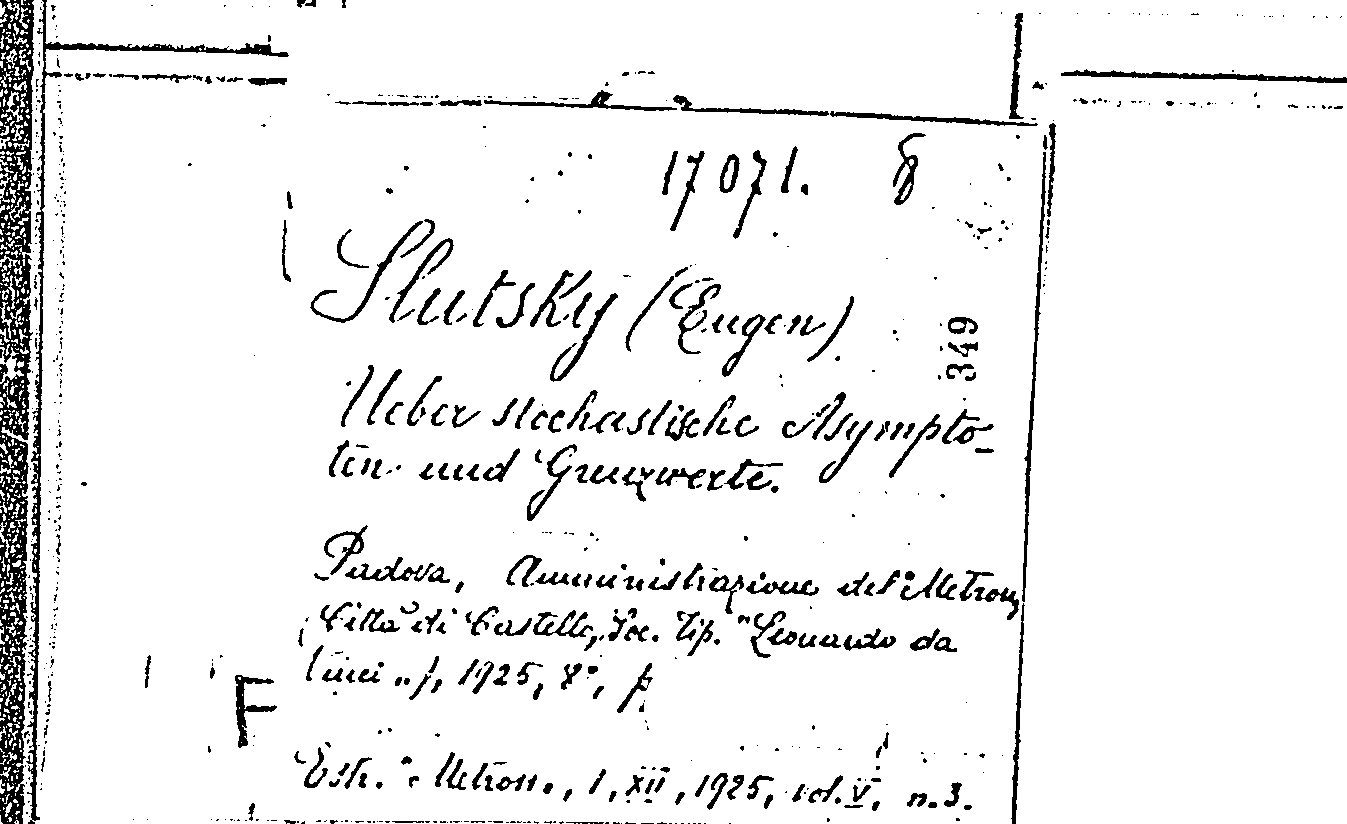 17071. 8
Slutsky (Eugen).
349
Ueber stochastische Asympto-
ten und Grenzwerte.
Padova, Amministrazione del "Metron,
(Città di Castello, Soc. Tip. "Leonardo da
Vinci „), 1925, 8°, p.
F
Estr. "Metron„, 1, XII, 1925, vol. V, n. 3.